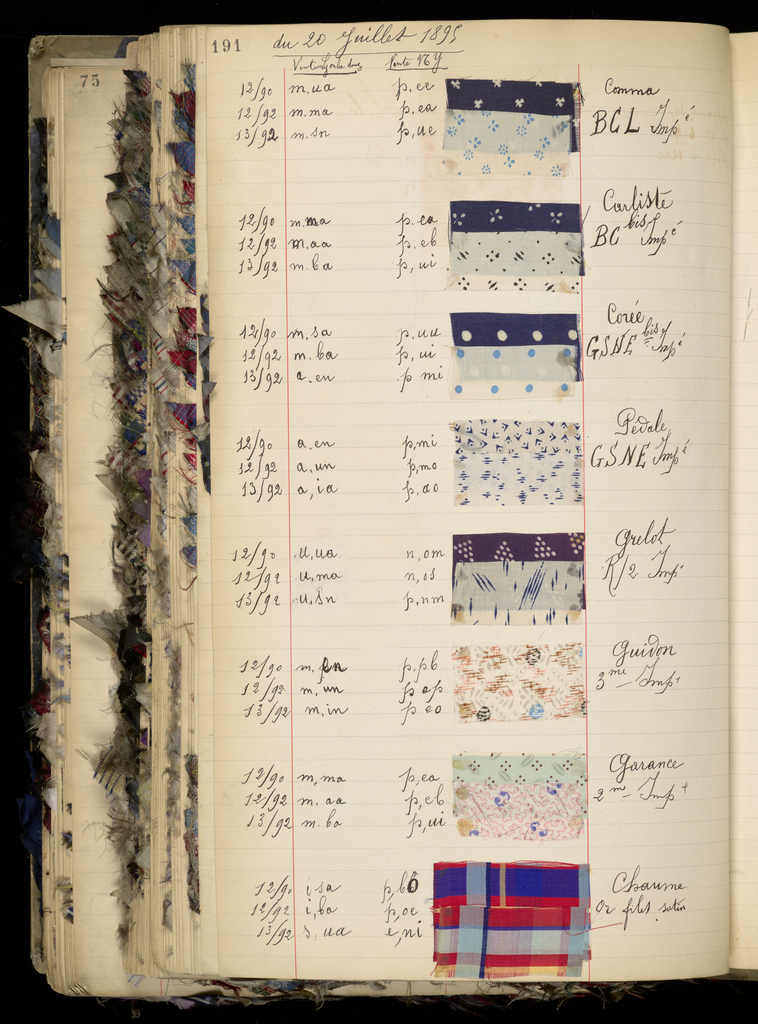 191
du 20 Juillet 1895
75
Vente
12/90 m.ua p.ee Comma
12/92 m.ma p.ea BCL Impé
13/92 m.sn p,ue
12/90 m.ma p.ea Carliste
12/92 m.aa p.eb BC bis Impé
13/92 m.ba p,ui
12/90 m.sa p.uu Corée
12/92 m.ba p,ui GSNE bis Impé
13/92 a.en p mi
12/90 a.en p,mi Pédale
12/92 a.un p,mo GSNE Impé
13/92 a,ia p.ao
12/90 u,ua n,om Grelot
12/92 u,ma n,os R/2 Imp
13/92 u,sn p,nm
12/90 p.pb Guidon
12/92 m,un p ep 3me Imp
13/92 m,in p eo
12/90 m,ma p,ea Garance
12/92 m.aa p,eb 2me Imp
13/92 m.ba p,ui
12/90 i.sa Chaume
12/92 i,ba p,oe Or filés satin
13/92 s,ua e,ni